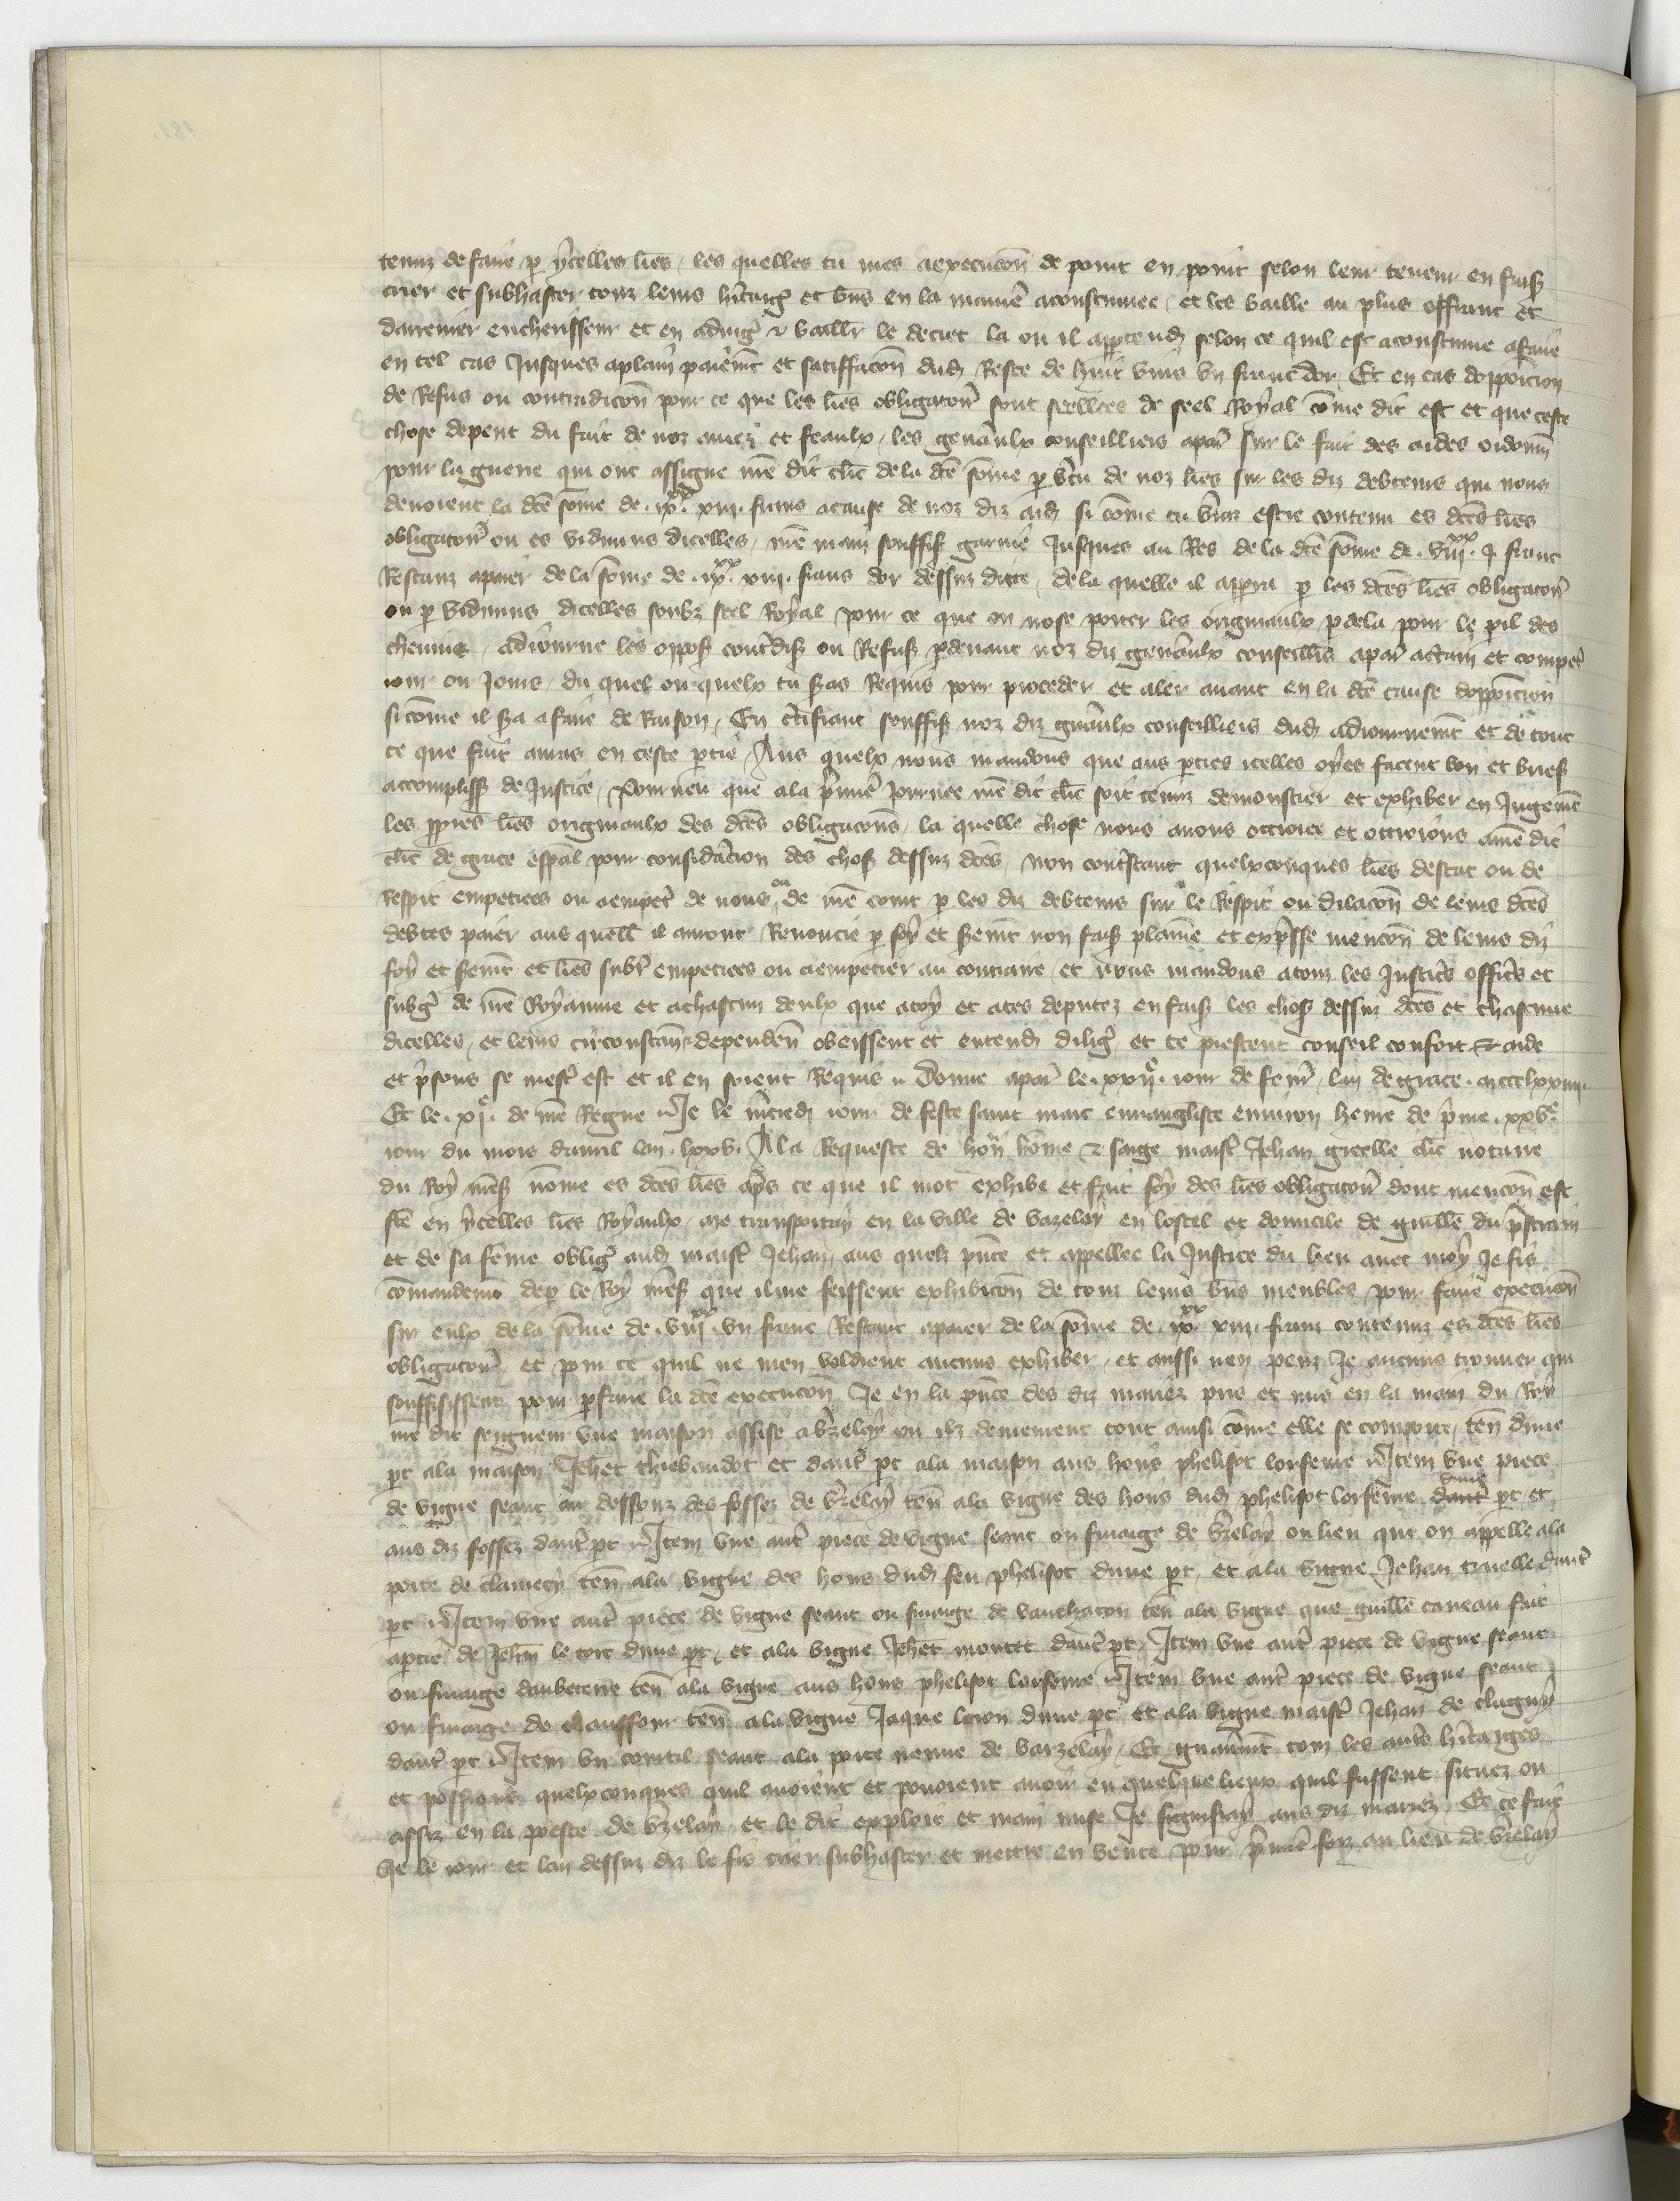 tenuz de faire p ycelles lres, les quelles tu mes a execucon de point en point selon leur teneur en fais
crier et subhaster touz leurs hitaig et bns en la maniere acoustumee, et les baille au plus offrant et
darrenier encherisseur et en adiug & baillr le decret la ou il apptendr selon ce quil est acoustume a faire
en tel cas Jusques a plain paiemt et satiffacon dud Reste de huit vins vn franc dor, Et en cas dopposicion
de Refus ou contradicon pour ce que les lres obligator sont seellees de seel Royal come dit est et que ceste
chose depent du fait de noz amez et feaulx, les genaulx conseilliers a par sur le fait des aides ordonn
pour la guerre qui ont assigne nre dit clic de la dce some p vtu de noz lres sur les diz debteurs qui nous
deuoient la dce some de .ixxx. xiiii. frans a cause de noz diz aid si come tu vrras estre contenu es dces lres
obligator ou es vidimus dicelles, nre main souffis garnie Jusques au Res de la dce some de .viiixx. j franc
Restanz a paier de la some de .ixxx. xiiii. frans dor dessuz dicte, de la quelle il appra p les dces lres obligator
ou p vidimus dicelles soubz seel Royal pour ce que on nose porter les originaulx p dela pour le pil des
chemins, adiourne les oppos contdis ou Refus pdeuant noz diz genaulx conseillrs a par a certain et compet
iour ou Jours, du quel ou quelx tu sas Requis pour proceder et aler auant en la dce cause dopposicion
si come il sa a faire de Raison, En ctifiant souffis noz diz gnaulx conseilliers dud adiournemt et de tout
ce que fait auras en ceste ptie Aus quelx nous mandons que aus pties icelles oyes facent bon et brief
accompliss de Justice, Pourueu que a la pmie Journee nre dit clic soit tenuz de monstrer et exhiber en Jugemt
les ppres lres originaulx des dces obligacons, la quelle chose nous auons ottroie et ottroions a nre dit
clic de grace espal pour consideacion des chos dessuz dces, non contstant quelxconques lres destat ou de
Respit empetrees ou a empet de nous ou de nre court p les diz debteurs sur le Respit ou dilacon de leurs dces
debtes paier aus quell il auront Renoncie p foy et semt non fais plainne et expsse mencon de leurs diz
foy et semt et lres subr empetrees ou a empetrer au contraire, et nous mandons a touz les Justics offics et
subg de nre Royaume et a chascun deulx que a toy et a tes deputez en fais les chos dessuz dces et chascune
dicelles, et leurs circonstan & dependen obeissent et entend dilig, et te prestent conseil confort & aide
et psons se mest est et il en soient Requis Donne a par le .xxije. iour de feur, lan de grace .mccclxxiiii.
Et le .xje. de nre Regne Je le mcred iour de feste saint marc euuangliste enuiron heure de pme .xxve.
iour du mois dauril lan .lxxv. A la Requeste de hon home & saige maist Jehan greelle clic notaire
du Roy mess nome es dces lres aps ce que il mot exhibe et fait foy des lres obligator dont mencon est
fte en ycelles lres Royaulx, me transportay en la ville de Vazelay en lostel et domicile de guille du pstrain
et de sa feme oblig aud maist Jehan, aus quelz pnce et appellee la Justice du lieu auec moy Je fis
comandemt dep le Roy mess que il me feissent exhibicon de touz leurs bns meubles pour faire execucon
sur eulx de la some de .viiixx. vn franc Restant a paier de la some de .ixxx. xiiii. franz contenuz es dces lres
obligator, et pour ce quil ne men voldrent aucuns exhiber, et aussi nen peuz Je aucuns trouuer qui
souffisissent pour pfaire la dce execucon, Je en la pnce des diz mariez pris et mis en la main du Roy
nre dit seigneur vne maison assise a Vzelay ou ilz demeurent tout ainsi come elle se comporte, ten dune
pt a la maison Jehet thiebaudot et daut pt a la maison aus hoirs phelisot lorfeure Item vne piece
de vigne seant au dessouz des fossez de Vzelay ten a la vigne des hoirs dud phelisot lorfeure daut dune pt et
aus diz fossez daut pt Item vne aut piece de vigne seant ou finaige de Vzelay ou lieu que on appelle a la
porte de clamecy ten a la vigne des hoirs dud feu phelisot dune pt, et a la vigne Jehan truelle daut
pt Item vne aut piece de vigne seant ou finaige de vauchaton ten a la vigne que guille caneau fait
a ptie de Jehan le tort dune pt, et a la vigne Jehet montet daut pt, Item vne aut piece de vigne seant
ou finaige daubeterre ten a la vigne aus hoirs phelisot lorfeure Item vne aut piece de vigne seant
ou finaige de chauffour ten a la vigne Jaque loron dune pt et a la vigne maist Jehan de clugny
daut pt Item vn courtil seant a la porte neuue de Varzelay, Et gnaumt touz les auts hitaiges
et possions quelxconques quil auoient et pouoient auoir en quelque lieux quil fussent situez ou
assiz en la poeste de Vzelay, et le dit exploit et main mise Je signifiay aus diz mariez, Et ce fait
Je le iour et lan dessuz diz le fis crier subhaster et mettre en vente pour pmie foiz au lieu de Vzelay